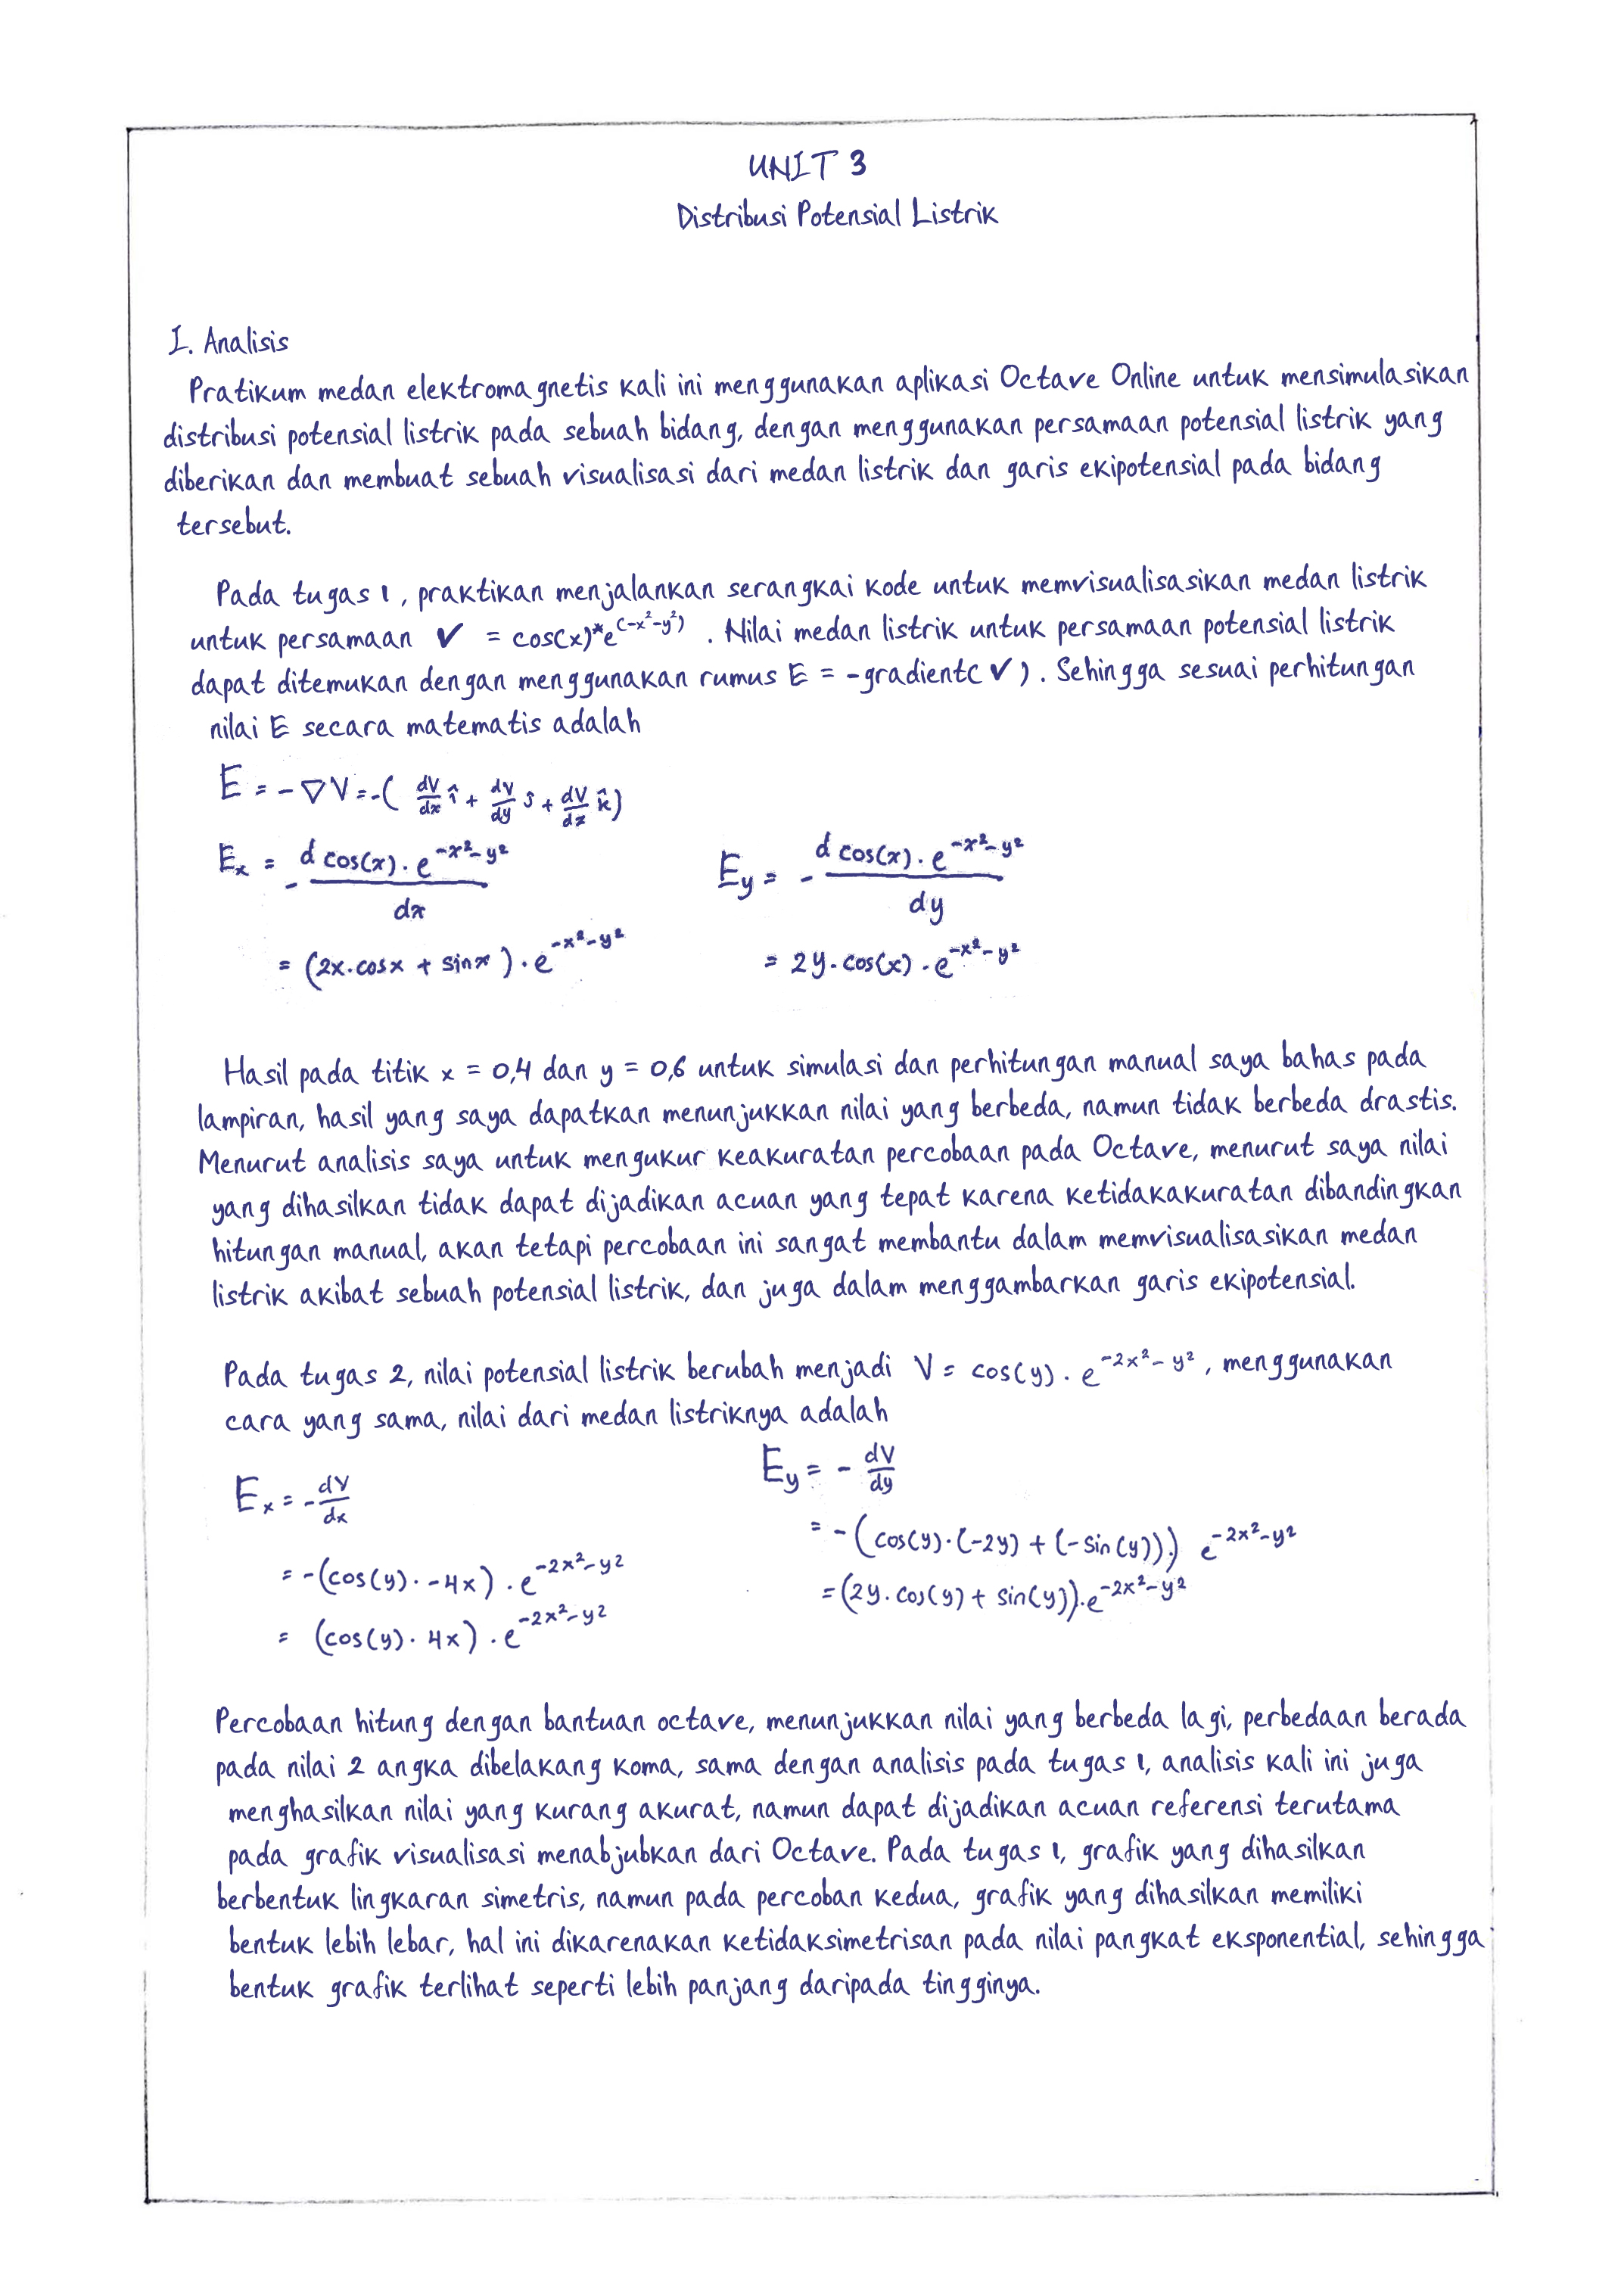 UNIT 3
Distribusi Potensial Listrik
I. Analisis
Pratikum medan elektromagnetis kali ini menggunakan aplikasi Octave Online untuk mensimulasikan
distribusi potensial listrik pada sebuah bidang, dengan menggunakan persamaan potensial listrik yang
diberikan dan membuat sebuah visualisasi dari medan listrik dan garis ekipotensial pada bidang
tersebut.
Pada tugas 1, praktikan menjalankan serangkai kode untuk memvisualisasikan medan listrik
untuk persamaan V = cos(x)*e^(-x²-y²) . Nilai medan listrik untuk persamaan potensial listrik
dapat ditemukan dengan menggunakan rumus E = -gradient(V). Sehingga sesuai perhitungan
nilai E secara matematis adalah
E = -∇V = -( dV/dx î + dV/dy ĵ + dV/dz k̂)
Ex = - d cos(x) . e^-x²-y² / dx
= (2x.cosx + sinx) . e^-x²-y²
Ey = - d cos(x) . e^-x²-y² / dy
= 2y. cos(x) . e^-x²-y²
Hasil pada titik x = 0,4 dan y = 0,6 untuk simulasi dan perhitungan manual saya bahas pada
lampiran, hasil yang saya dapatkan menunjukkan nilai yang berbeda, namun tidak berbeda drastis.
Menurut analisis saya untuk mengukur keakuratan percobaan pada Octave, menurut saya nilai
yang dihasilkan tidak dapat dijadikan acuan yang tepat karena ketidakakuratan dibandingkan
hitungan manual, akan tetapi percobaan ini sangat membantu dalam memvisualisasikan medan
listrik akibat sebuah potensial listrik, dan juga dalam menggambarkan garis ekipotensial.
Pada tugas 2, nilai potensial listrik berubah menjadi V = cos(y) . e^-2x²-y² , menggunakan
cara yang sama, nilai dari medan listriknya adalah
Ex = - dV/dx
= -(cos(y) . -4x) . e^-2x²-y²
= (cos(y) . 4x) . e^-2x²-y²
Ey = - dV/dy
= -(cos(y).(-2y) + (-sin(y))) e^-2x²-y²
= (2y. cos(y) + sin(y)).e^-2x²-y²
Percobaan hitung dengan bantuan octave, menunjukkan nilai yang berbeda lagi, perbedaan berada
pada nilai 2 angka dibelakang koma, sama dengan analisis pada tugas 1, analisis kali ini juga
menghasilkan nilai yang kurang akurat, namun dapat dijadikan acuan referensi terutama
pada grafik visualisasi menabjubkan dari Octave. Pada tugas 1, grafik yang dihasilkan
berbentuk lingkaran simetris, namun pada percoban kedua, grafik yang dihasilkan memiliki
bentuk lebih lebar, hal ini dikarenakan ketidaksimetrisan pada nilai pangkat eksponential, sehingga
bentuk grafik terlihat seperti lebih panjang daripada tingginya.